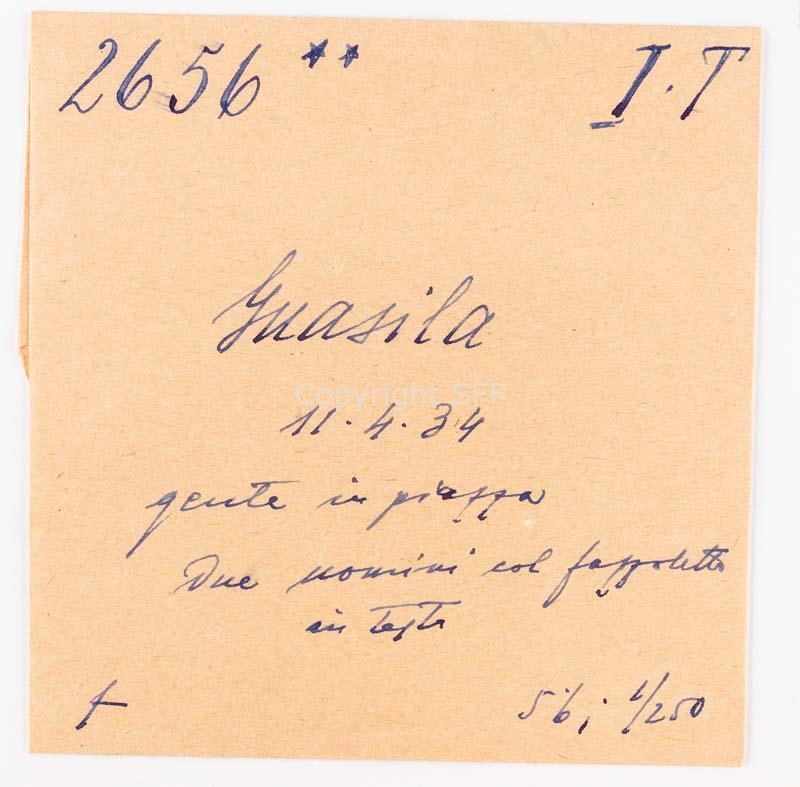 2656 ** I.T
Guasila
Copyright SFF
11.4.34
gente in piazza
due uomini col fazzoletto
in testa
f 5'6; 1/250